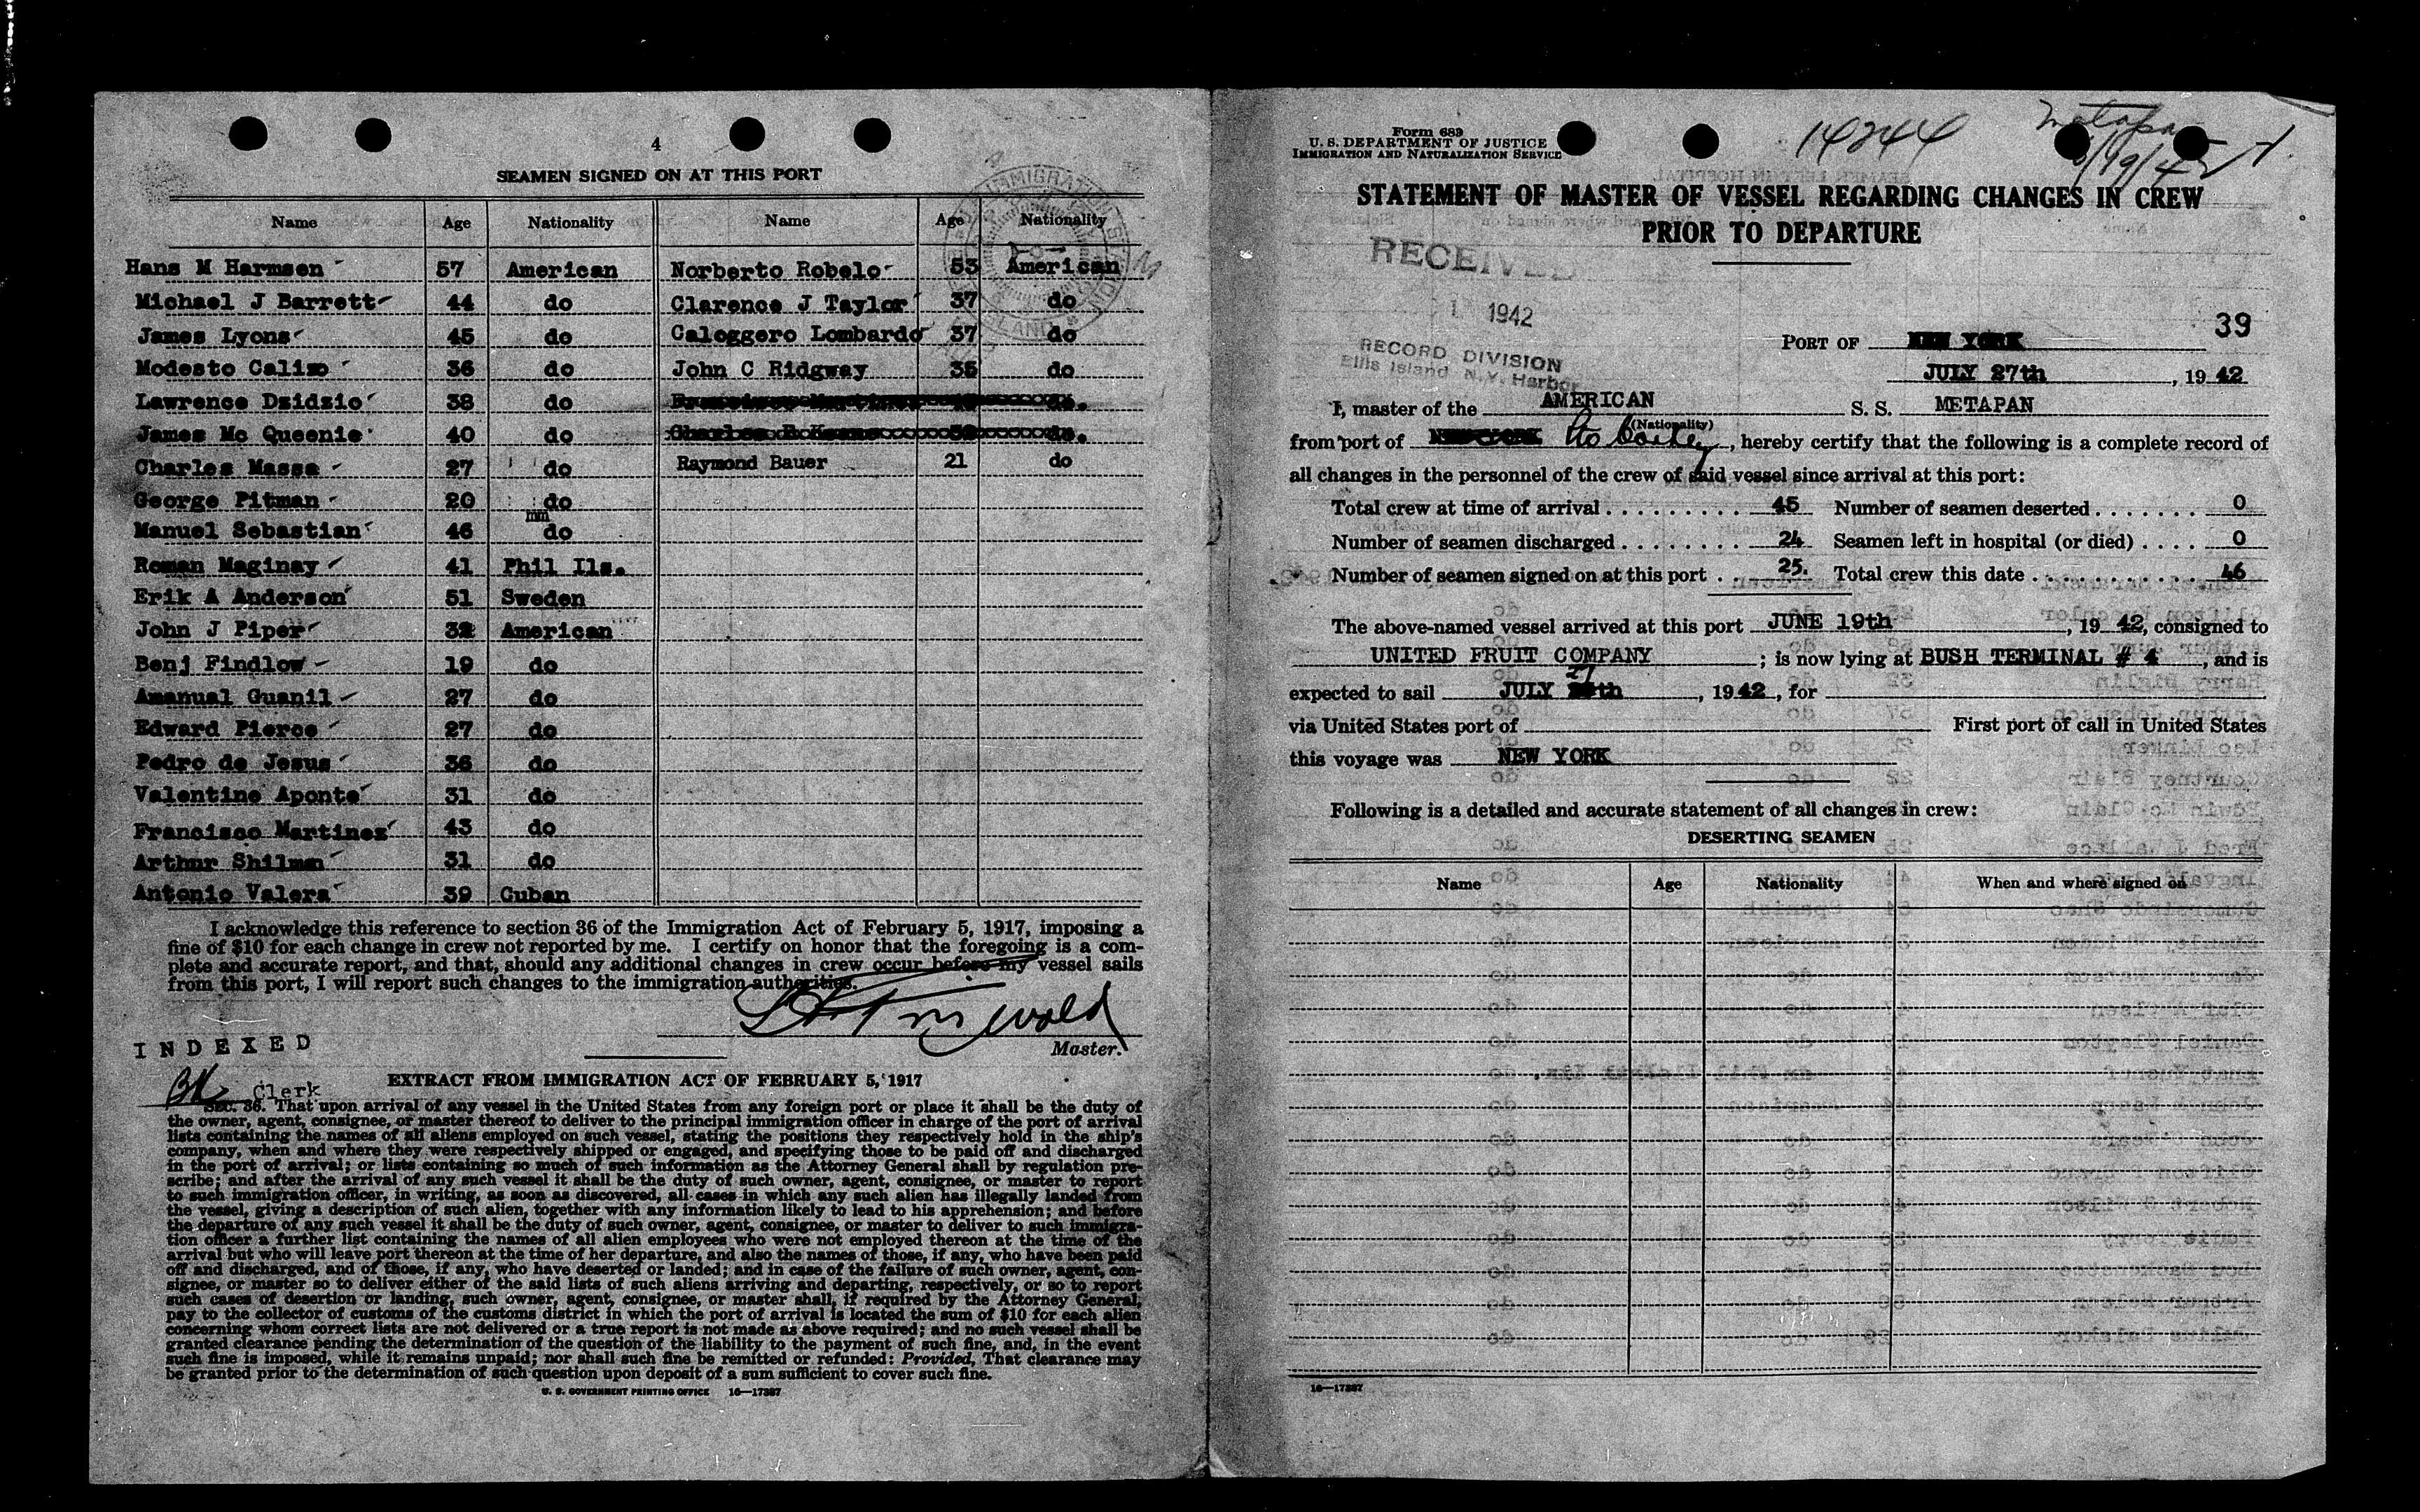 4
SEAMEN SIGNED ON AT THIS PORT
Name Age Nationality Name Age Nationality
Hans M Harmsen 57 American Norberto Robelo 53 American
Michael J Barrett 44 do Clarence J Taylor 37 do
James Lyons 45 do Caloggero Lombardo 37 do
Modesto Calizo 36 do John C Ridgway 35 do
Lawrence Dzidzio 38 do
James Mc Queenie 40 do
Charles Massa 27 do Raymond Bauer 21 do
George Pitman 20 do
mm
Manuel Sebastian 46 do
Roman Maginay 41 Phil Ils.
Erik A Anderson 51 Sweden
John J Piper 32 American
Benj Findlow 19 do
Amanual Guanil 27 do
Edward Pierce 27 do
Pedro de Jesus 36 do
Valentine Aponte 31 do
Francisco Martinez 43 do
Arthur Shilman 31 do
Antonio Valera 39 Cuban
I acknowledge this reference to section 36 of the Immigration Act of February 5, 1917, imposing a
fine of $10 for each change in crew not reported by me. I certify on honor that the foregoing is a com-
plete and accurate report, and that, should any additional changes in crew occur before my vessel sails
from this port, I will report such changes to the immigration authorities.
Master.
INDEXED
Clerk
EXTRACT FROM IMMIGRATION ACT OF FEBRUARY 5, 1917
Sec. 36. That upon arrival of any vessel in the United States from any foreign port or place it shall be the duty of
the owner, agent, consignee, or master thereof to deliver to the principal immigration officer in charge of the port of arrival
lists containing the names of all aliens employed on such vessel, stating the positions they respectively hold in the ship's
company, when and where they were respectively shipped or engaged, and specifying those to be paid off and discharged
in the port of arrival; or lists containing so much of such information as the Attorney General shall by regulation pre-
scribe; and after the arrival of any such vessel it shall be the duty of such owner, agent, consignee, or master to report
to such immigration officer, in writing, as soon as discovered, all cases in which any such alien has illegally landed from
the vessel, giving a description of such alien, together with any information likely to lead to his apprehension; and before
the departure of any such vessel it shall be the duty of such owner, agent, consignee, or master to deliver to such immigra-
tion officer a further list containing the names of all alien employees who were not employed thereon at the time of the
arrival but who will leave port thereon at the time of her departure, and also the names of those, if any, who have been paid
off and discharged, and of those, if any, who have deserted or landed; and in case of the failure of such owner, agent, con-
signee, or master so to deliver either of the said lists of such aliens arriving and departing, respectively, or so to report
such cases of desertion or landing, such owner, agent, consignee, or master shall, if required by the Attorney General,
pay to the collector of customs of the customs district in which the port of arrival is located the sum of $10 for each alien
concerning whom correct lists are not delivered or a true report is not made as above required; and no such vessel shall be
granted clearance pending the determination of the question of the liability to the payment of such fine, and, in the event
such fine is imposed, while it remains unpaid; nor shall such fine be remitted or refunded: Provided, That clearance may
be granted prior to the determination of such question upon deposit of a sum sufficient to cover such fine.
U. S. GOVERNMENT PRINTING OFFICE 16—17387
Form 689
U. S. DEPARTMENT OF JUSTICE
IMMIGRATION AND NATURALIZATION SERVICE
14244
STATEMENT OF MASTER OF VESSEL REGARDING CHANGES IN CREW
PRIOR TO DEPARTURE
RECEIVED
1 1942
RECORD DIVISION
Ellis Island N.Y. Harbor
39
PORT OF NEW YORK
JULY 27th, 1942
I, master of the AMERICAN S. S. METAPAN
(Nationality)
from port of NEW YORK, hereby certify that the following is a complete record of
all changes in the personnel of the crew of said vessel since arrival at this port:
Total crew at time of arrival . . . . . . . . . 45 Number of seamen deserted . . . . . . . 0
Number of seamen discharged . . . . . . . . 24 Seamen left in hospital (or died) . . . . 0
Number of seamen signed on at this port . . 25. Total crew this date . . . . . . . . . . . 46
The above-named vessel arrived at this port JUNE 19th, 1942, consigned to
UNITED FRUIT COMPANY; is now lying at BUSH TERMINAL # 4, and is
expected to sail JULY 27 th, 1942, for
via United States port of First port of call in United States
this voyage was NEW YORK
Following is a detailed and accurate statement of all changes in crew:
DESERTING SEAMEN
Name Age Nationality When and where signed on
16—17387